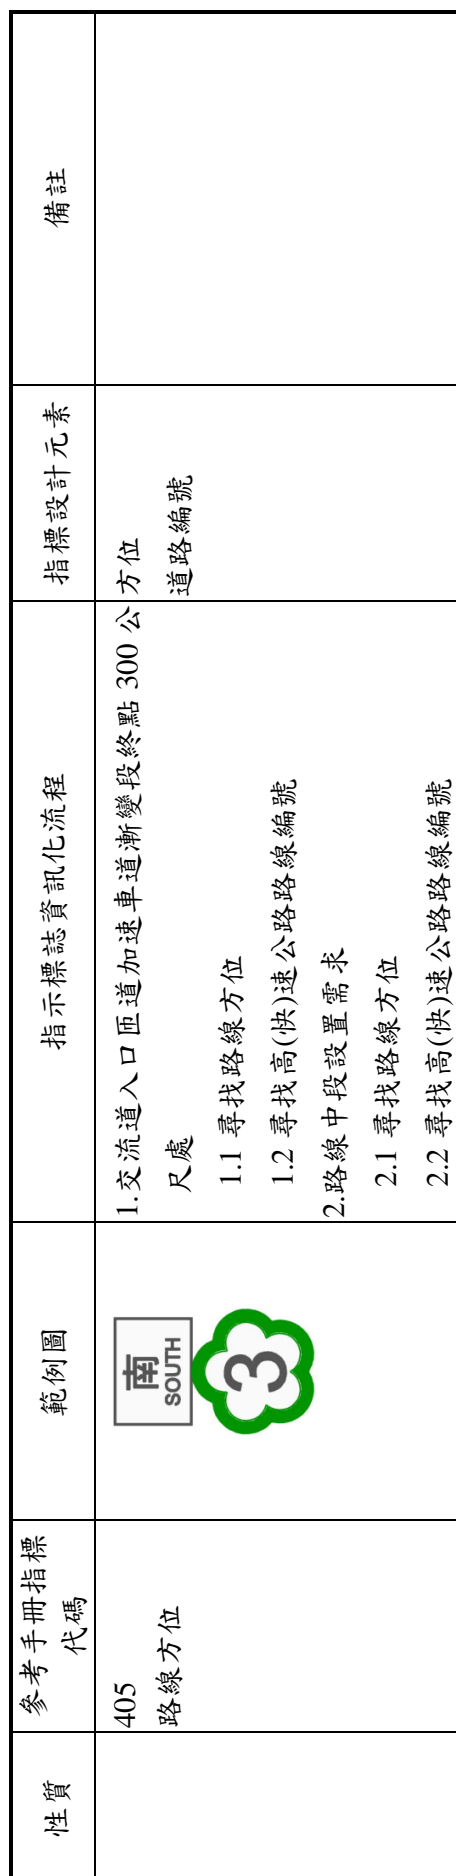 性質
參考手冊指標
代碼
範例圖
指示標誌資訊化流程
指標設計元素
備註
405
路線方位
南
SOUTH
3
1.交流道入口匝道加速車道漸變段終點 300 公
尺處
1.1 尋找路線方位
1.2 尋找高(快)速公路路線編號
2.路線中段設置需求
2.1 尋找路線方位
2.2 尋找高(快)速公路路線編號
方位
道路編號